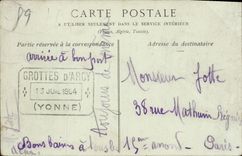 CARTE POSTALE
A UTILISER SEULEMENT DANS LE SERVICE INTÉRIEUR
(France, Algérie, Tunisie)
Partie réservée à la correspondance
Adresse du destinataire
arrivée à bon port
GROTTES D'ARCY
13 JUIL 1904
(YONNE)
toujours
Monsieur Jotte
38 rue Mathurin
15 arrond
Paris
Bons baisers à tous